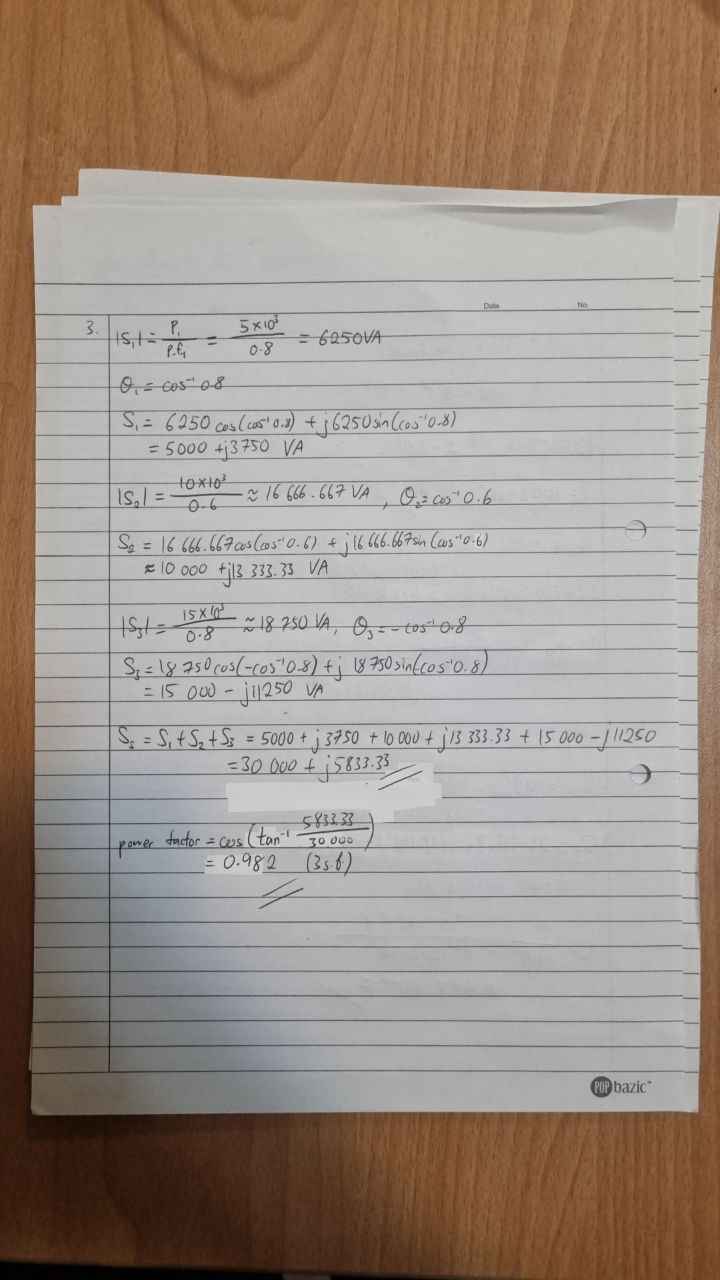 Date No.
3. |S₁| = P₁/p.f₁ = 5×10³/0.8 = 6250VA
θ₁ = cos⁻¹ 0.8
S₁ = 6250 cos(cos⁻¹0.8) + j6250sin(cos⁻¹0.8)
= 5000 + j3750 VA
|S₂| = 10×10³/0.6 ≈ 16 666.667 VA , θ₂=cos⁻¹0.6
S₂ = 16 666.667cos(cos⁻¹0.6) + j16 666.667sin(cos⁻¹0.6)
≈ 10 000 + j13 333.33 VA
|S₃| = 15×10³/0.8 ≈ 18 750 VA, θ₃ = -cos⁻¹0.8
S₃ = 18 750cos(-cos⁻¹0.8) + j 18 750sin(cos⁻¹0.8)
= 15 000 - j11250 VA
Sₛ = S₁ + S₂ + S₃ = 5000 + j3750 + 10 000 + j13 333.33 + 15 000 - j11250
= 30 000 + j5833.33
power factor = cos(tan⁻¹ 5833.33/30 000)
= 0.982 (3s.f.)
POP bazic™